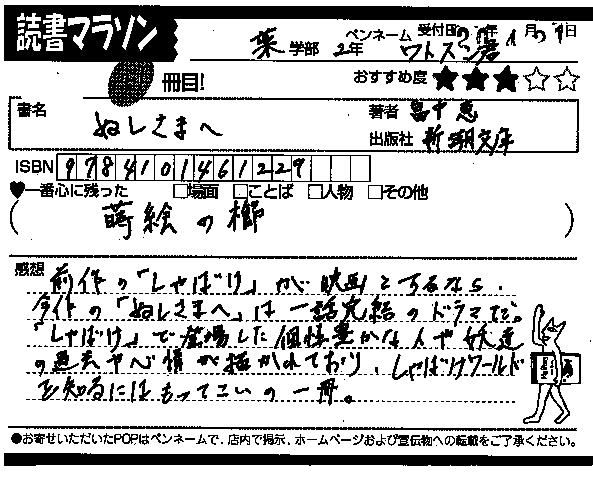 読書マラソン
薬 学部 2年 ペンネーム ワトスン君 受付日 月 日
冊目! おすすめ度 ★★★☆☆
書名 ぬしさまへ
著者 畠中恵
出版社 新潮文庫
ISBN 9784101461229
♥一番心に残った □場面 □ことば □人物 □その他
( 蒔絵の櫛 )
感想 前作の「しゃばけ」が映画とするなら、
今作の「ぬしさまへ」は一話完結のドラマだ。
「しゃばけ」で登場した個性豊かな人や妖達
の過去や心情が描かれており、しゃばけワールド
を知るにはもってこいの一冊。
●お寄せいただいたPOPはペンネームで、店内で掲示、ホームページおよび宣伝物への転載をご了承ください。